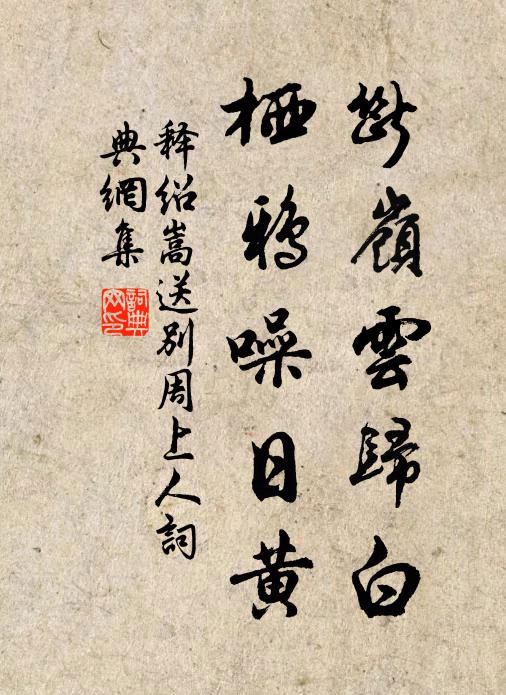 斷嶺雲歸白
栖鴉噪日黄
释绍嵩送别周上人詞
典網集
詞典
网印